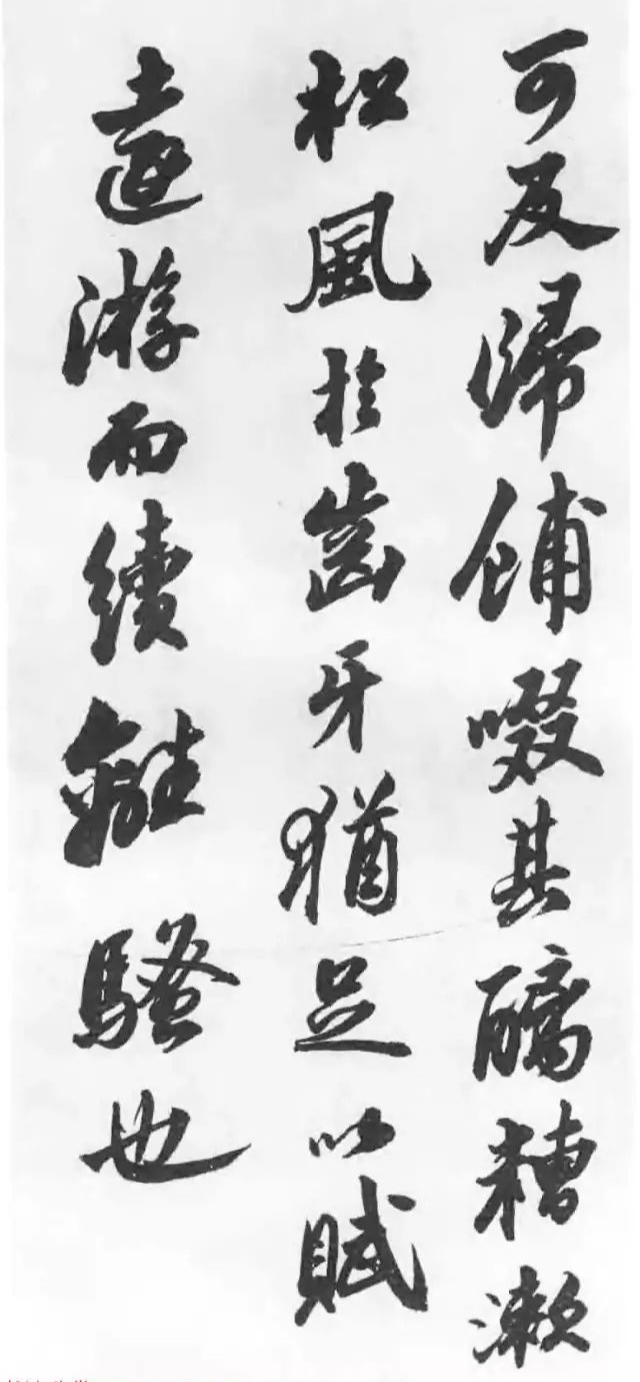 可及歸餔啜其醨糟漱
松風於齒牙猶足以賦
遠游而續離騷也